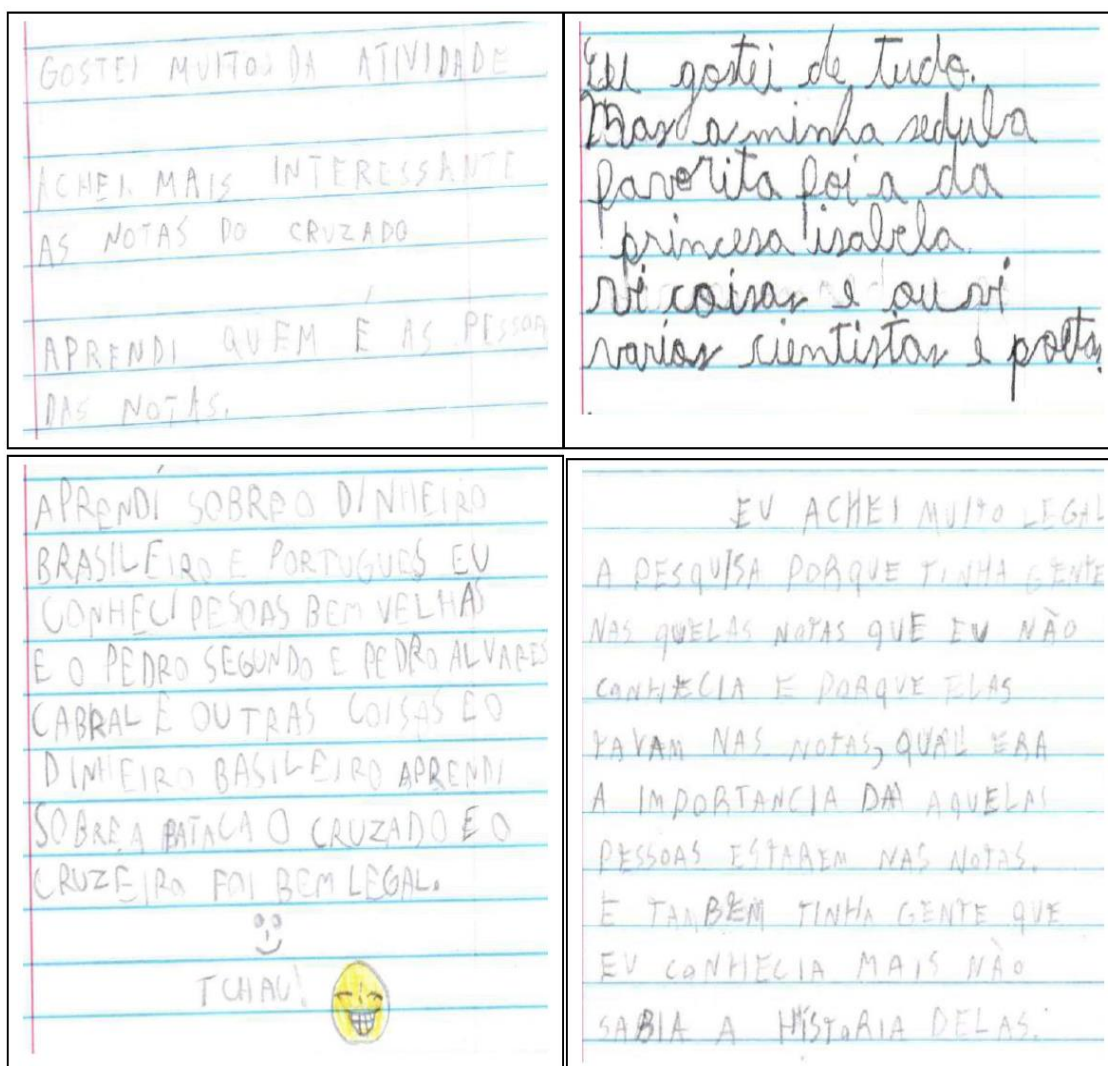 GOSTEI MUITOS DA ATIVIDADE
ACHEI MAIS INTERESSANTE
AS NOTAS DO CRUZADO
APRENDI QUEM É AS PESSOA
DAS NOTAS.
Eu gostei de tudo.
Mas a minha sedula
favorita foi a da
princesa isabela
vi coisas e ou vi
varios sientistas e poetas
APRENDÍ SOBRE O DINHEIRO
BRASILEIRO E PORTUGUES EU
CONHECI PESOAS BEM VELHAS
E O PEDRO SEGUNDO E PEDRO ALVARES
CABRAL E OUTRAS COISAS E O
DINHEIRO BASILEIRO APRENDI
SOBRE A PATACA O CRUZADO E O
CRUZEIRO FOI BEM LEGAL.
TCHAU!
EU ACHEI MUITO LEGAL
A PESQUISA PORQUE TINHA GENTE
NAS QUELAS NOTAS QUE EU NÃO
CONHECIA E PORQUE ELAS
TAVAM NAS NOTAS, QUAL ERA
A IMPORTANCIA DA AQUELAS
PESSOAS ESTAREM NAS NOTAS.
E TAMBEM TINHA GENTE QUE
EU CONHECIA MAIS NÃO
SABIA A HISTORIA DELAS.